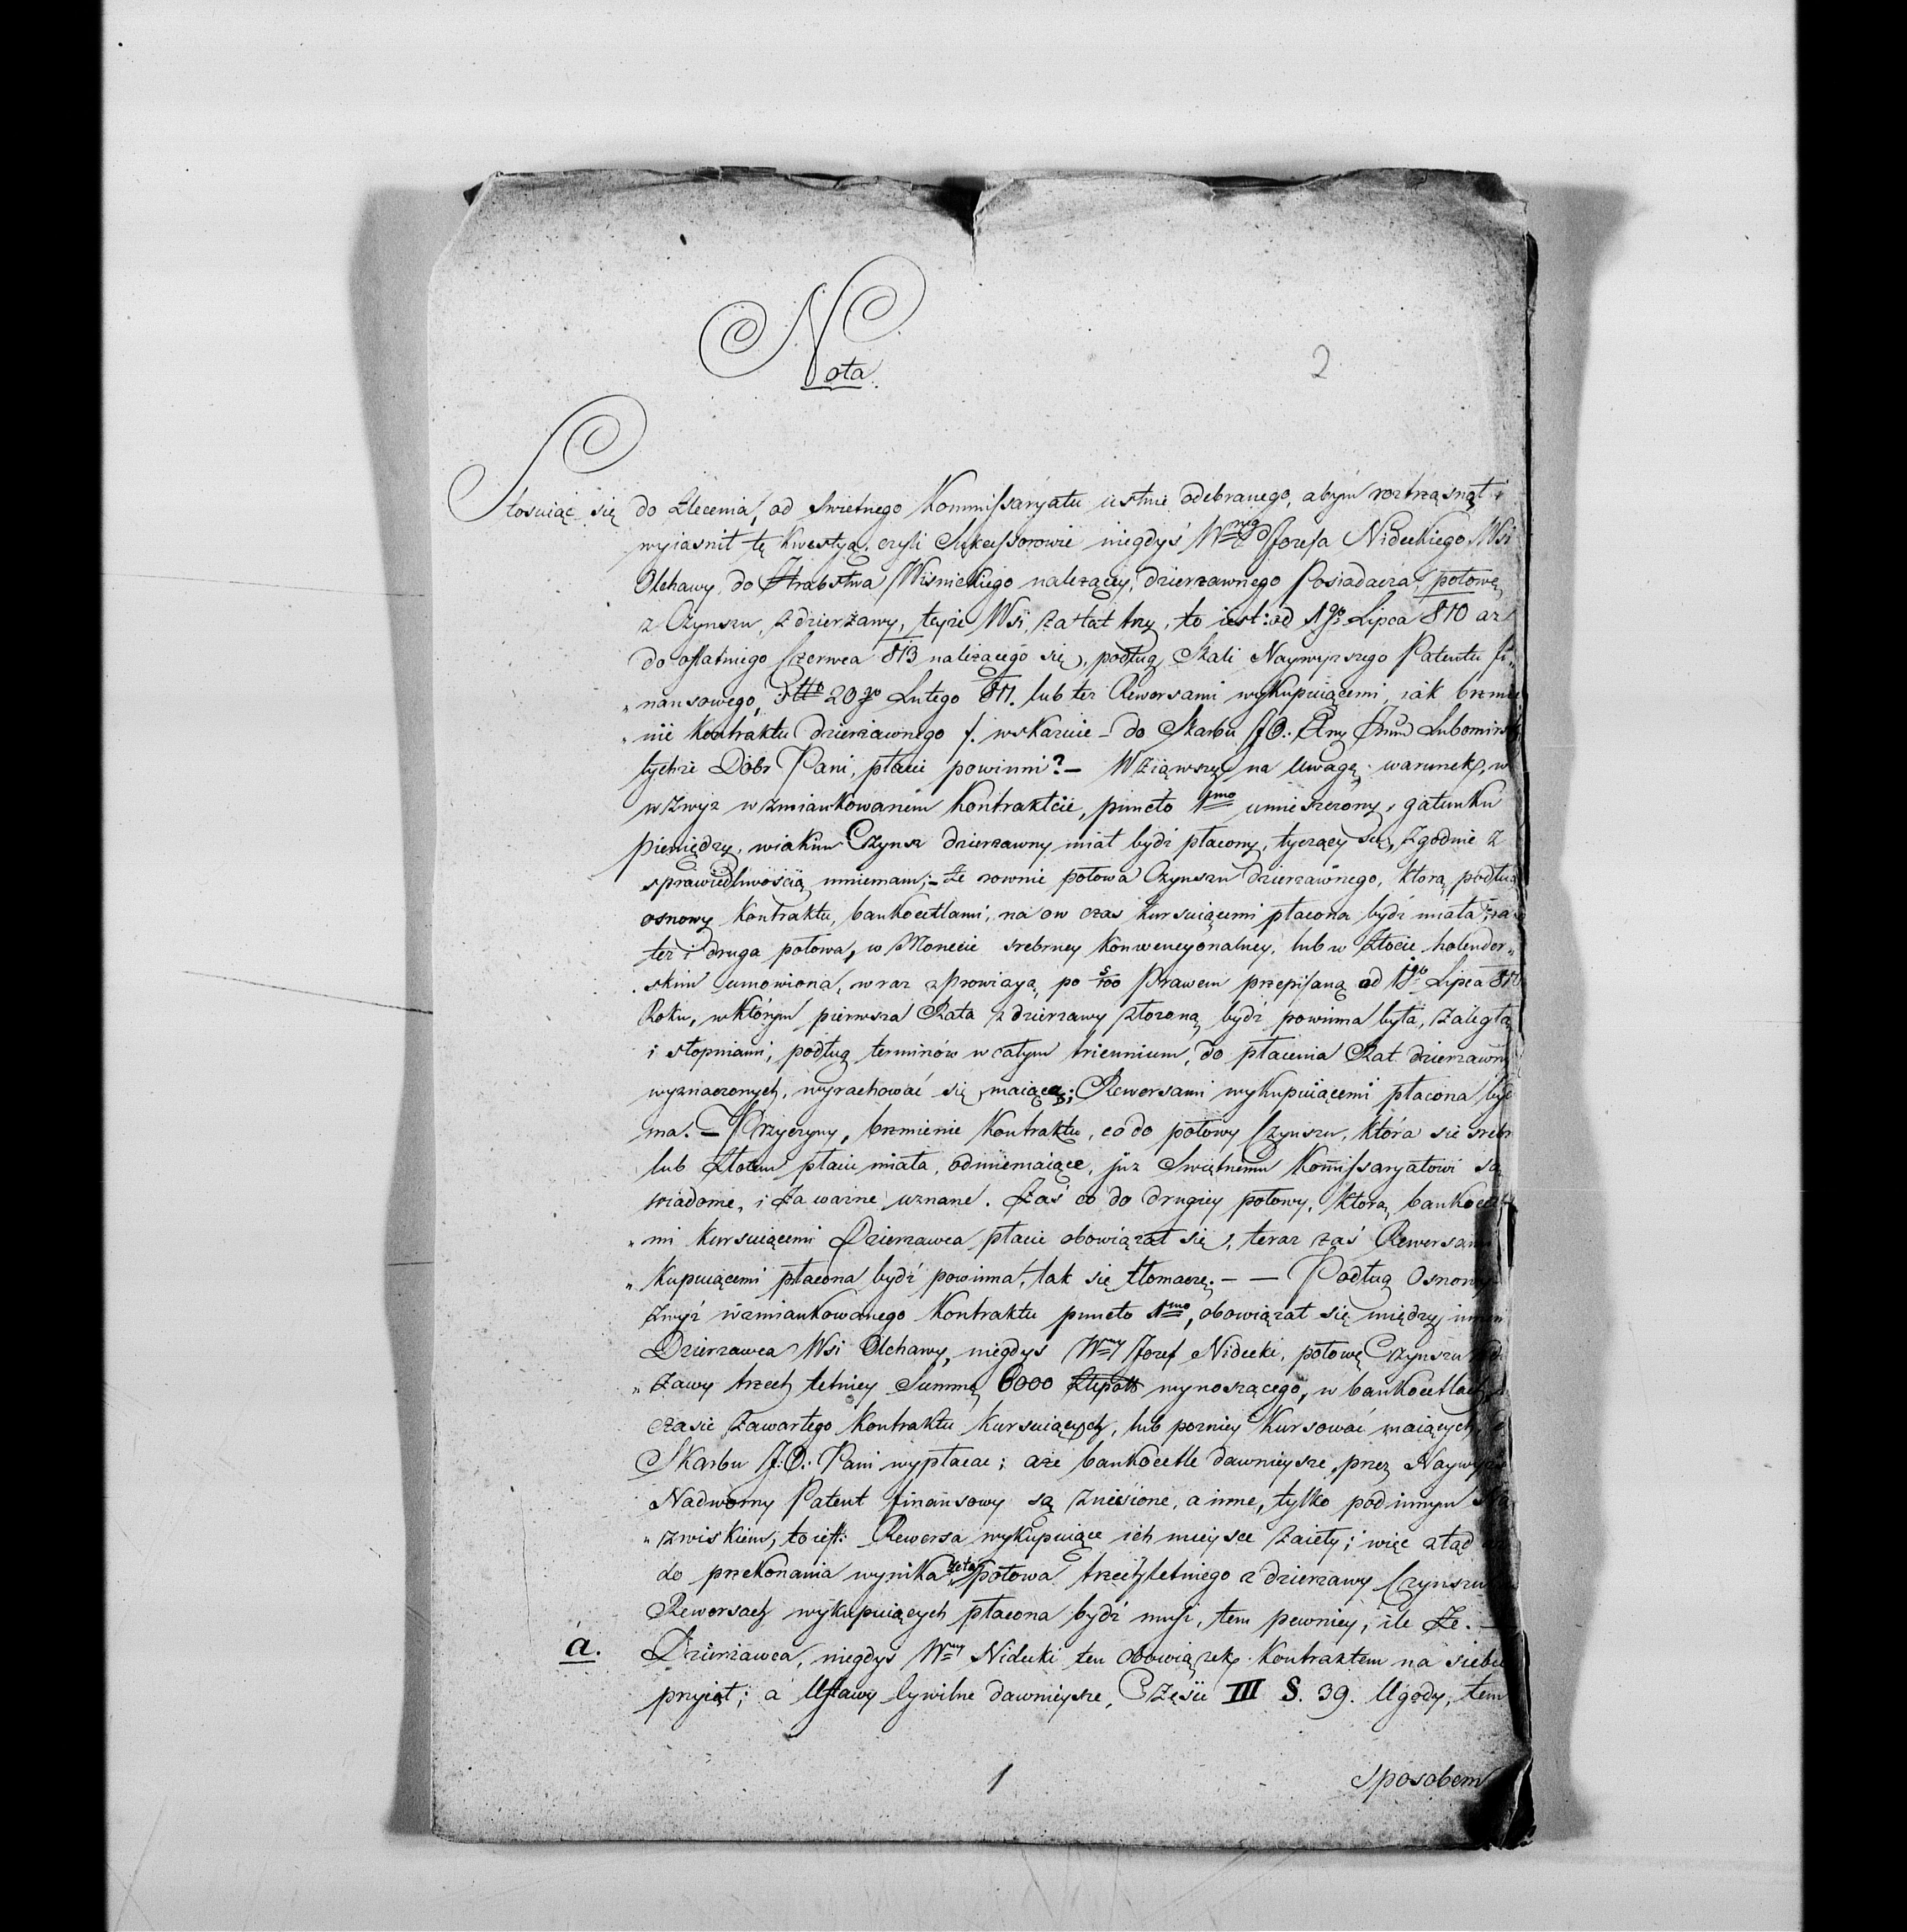 Nota.
2
Stosuiąc się do Zlecenia, od Swietnego Kommissaryatu ustnie odebranego, abym roztrząsnął i
wyiasnił tę kwestyą, czyli Sukcessorowie niegdyś Wnego Jozefa Nideckiego Wsi
Olchawy, do Hrabstwa Wisnickiego należącey, dzierzawnego Posiadacza, połowę
z Czynszu z dzierżawy, teyże Wsi, za lat trzy, to iest: od 1go Lipca 810 az
do ostatniego Czerwca 813 należącego się, podług Skali Naywyzszego Patentu fi„
„nansowego, dtto 20go Lutego 811. lub też Rewersami wykupuiącemi, iak brzmie
„nie Kontraktu dzierzawnego f. wskazuie – do Skarbu J.O. Xżny Lubomirsk
tychże Dobr Pani, płacić powinni? – Wziąwszy na uwagę warunek, w
wzwyz wzmiankowanem Kontrakcie, puncto 1mo umieszczony, gatunku
pieniędzy, w iakim Czynsz dzierzawny miał bydz płacony, tyczący się, zgodnie z
sprawiedliwością mniemam; – Ze rownie połowa Czynszu dzierzawnego, ktora podług
osnowy Kontraktu, bankocetlami, na ow czas kursuiącemi płacona bydź miała,
też i druga połowa, w Monecie srebrney konwencyonalney, lub w Złocie holender„
„skim umowiona, wraz z Prowizyą po 5/100 Prawem przepisaną od 1go Lipca 810
Roku, w którym pierwsza Rata z dzierzawy złozoną bydź powinna była, zaległą
i stopniami, podług terminów w całym triennium, do płacenia Rat dzierzawn
wyznaczonych, wyrachować się maiącą; Rewersami wykupuiącemi płacona byd
ma. – Przyczyny, brzmienie Kontraktu, co do połowy Czynszu, która się srebr
lub Złotem płacić miała, odmieniaiące, już Swiętnemu Kommissaryatowi są
wiadome, i za wazne uznane. Zaś co do drugiey połowy, ktorą bankocetla
„mi kursuiącemi Dzierzawca płacić obowiązał się, teraz zaś Rewersami
„kupuiącemi płacona bydź powinna, tak się tłomaczę. – – Podług Osnowy
zwyż wzmiankowanego Kontraktu puncto 1mo, obowiązał się między innem
Dzierzawca Wsi Olchawy, niegdys Wny Jozef Nidecki, połowę Czynszu z dz
„zawy trzech letniey Summę 6000 wynoszącego, w bankocetlach
czasie zawartego Kontraktu kursuiących, lub pozniey kursować maiących,
Skarbu J.O. Pani wypłacac; aże bankocetle dawnieysze, przez Naywyższ
Nadworny Patent finansowy są zniesione, a inne, tylko pod innym Na
„zwiskiem, to iest: Rewersa wykupuiące ich mieysce zaieły; więc ztąd
do przekonania wynika, że ta połowa trzechletniego z dzierzawy Czynszu
Rewersach wykupuiących płacona bydź musi, tem pewniey, ile Ze. –
a. Dzierzawca, niegdyś Wny Nidecki ten obowiązek Kontraktem na siebie
przyiął; a Ustawy Cywilne dawnieysze, Części III §. 39. Ugody, tem
1
Sposobem